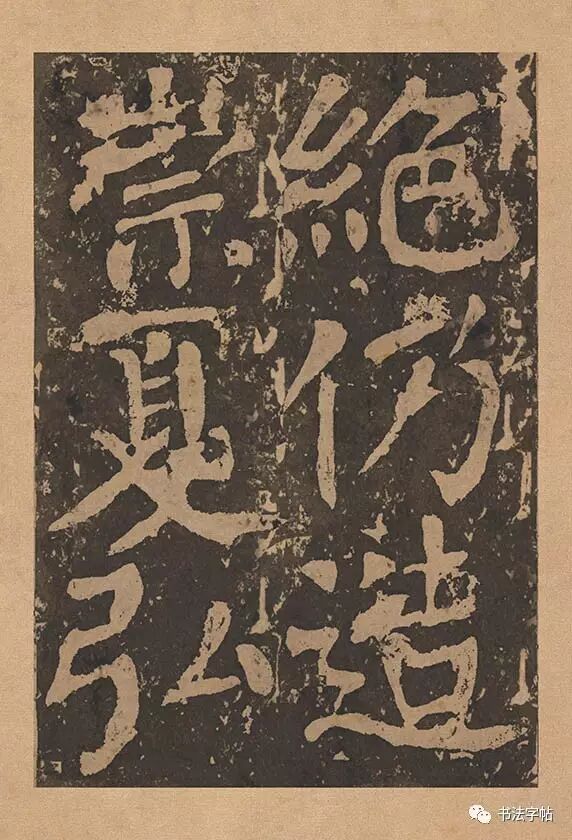 絕仍造
崇夏弘
书法字帖